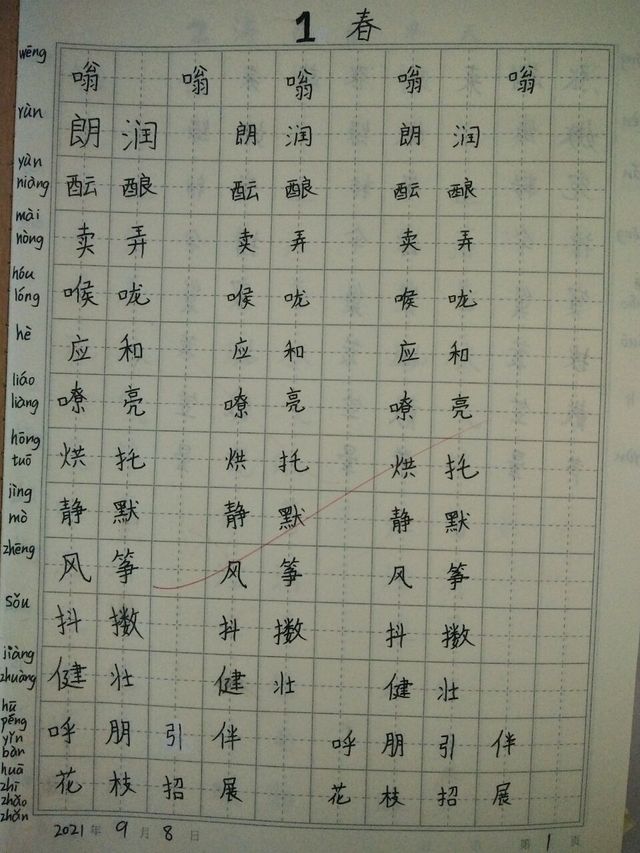 1 春
wēng 嗡 嗡 嗡 嗡 嗡
rùn 朗润 朗润 朗润
yùn niàng 酝酿 酝酿 酝酿
mài nòng 卖弄 卖弄 卖弄
hóu lóng 喉咙 喉咙 喉咙
hè 应和 应和 应和
liáo liàng 嘹亮 嘹亮 嘹亮
hōng tuō 烘托 烘托 烘托
jìng mò 静默 静默 静默
zhēng 风筝 风筝 风筝
sǒu 抖擞 抖擞 抖擞
jiàng zhuàng 健壮 健壮 健壮
hū péng yǐn bàn 呼朋引伴 呼朋引伴
huā zhī zhāo zhǎn 花枝招展 花枝招展
2021年 9月 8日 第1页